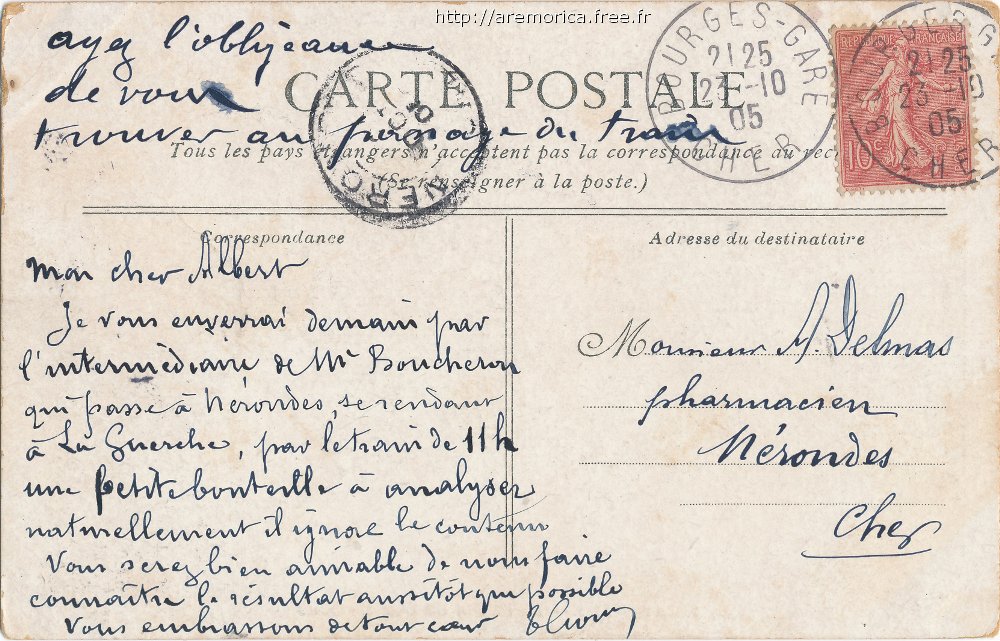 http://aremorica.free.fr
ayez l'obligeance
de vous
trouver au passage du train
CARTE POSTALE
Tous les pays étrangers n'acceptent pas la correspondance au rec
(Se renseigner à la poste.)
BOURGES-GARE
21 25
23-10
05
CHER
REPUBLIQUE FRANÇAISE
10 c
BOURGES-GARE
21 25
23-10
05
CHER
NERONDES
Correspondance
Mon cher Albert
Je vous enverrai demain par
l'intermédiaire de Mr Boucheron
qui passe à Nérondes, se rendant
à La Guerche, par le train de 11h
une petite bouteille à analyser
naturellement il ignore le contenu
Vous serez bien aimable de nous faire
connaître le résultat aussitôt que possible
Vous embrassons de tout cœur
Adresse du destinataire
Monsieur A. Delmas
pharmacien
Nérondes
Cher